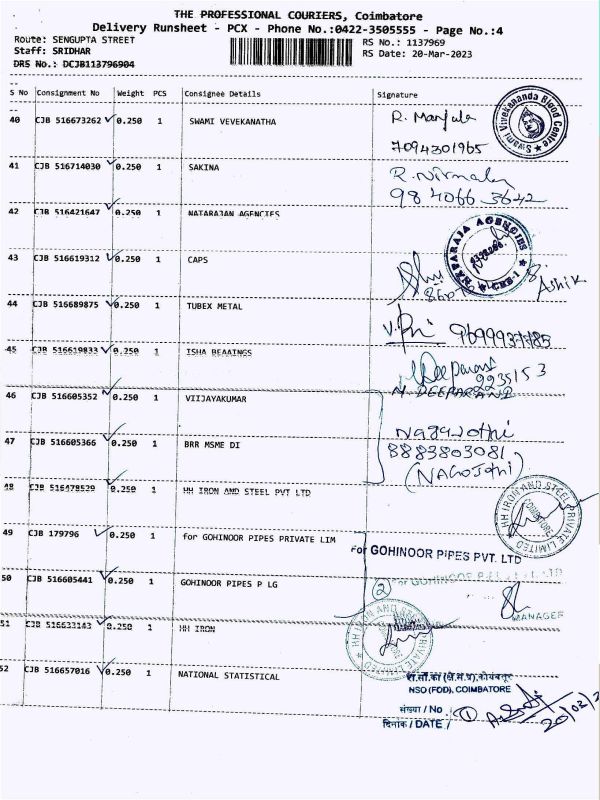 THE PROFESSIONAL COURIERS, Coimbatore
Delivery Runsheet - PCX - Phone No.:0422-3505555 - Page No.:4
Route: SENGUPTA STREET RS No.: 1137969
Staff: SRIDHAR RS Date: 20-Mar-2023
DRS No.: DCJB113796904
S No Consignment No Weight PCS Consignee Details Signature
40 CJB 516673262 0.250 1 SWAMI VEVEKANATHA R. Manjula
7094301965
Swami Vivekananda Blood Centre
41 CJB 516714030 0.250 1 SAKINA R. Nirmala
984066 3642
42 CJB 516421647 0.250 1 NATARAJAN AGENCIES
NATARAJA AGENCIES
CBE-1
43 CJB 516619312 0.250 1 CAPS
Ashik
44 CJB 516689875 0.250 1 TUBEX METAL
45 CJB 516619833 0.250 1 ISHA BEAAINGS
9235153
46 CJB 516605352 0.250 1 VIIJAYAKUMAR
47 CJB 516605366 0.250 1 BRR MSME DI Nagajothi
8883803081
(NAGOJothi)
48 CJB 516478529 0.250 1 HH IRON AND STEEL PVT LTD
HH IRON AND STEEL PRIVATE LIMITED
COIMBATORE
49 CJB 179796 0.250 1 for GOHINOOR PIPES PRIVATE LIM
For GOHINOOR PIPES PVT. LTD
50 CJB 516605441 0.250 1 GOHINOOR PIPES P LG
2 For GOHINOOR PIPES PVT. LTD
MANAGER
51 CJB 516633143 0.250 1 HH IRON
HH IRON AND STEEL PRIVATE LIMITED
52 CJB 516657016 0.250 1 NATIONAL STATISTICAL
NSO (FOD), COIMBATORE
संख्या / No. 1
दिनांक / DATE /